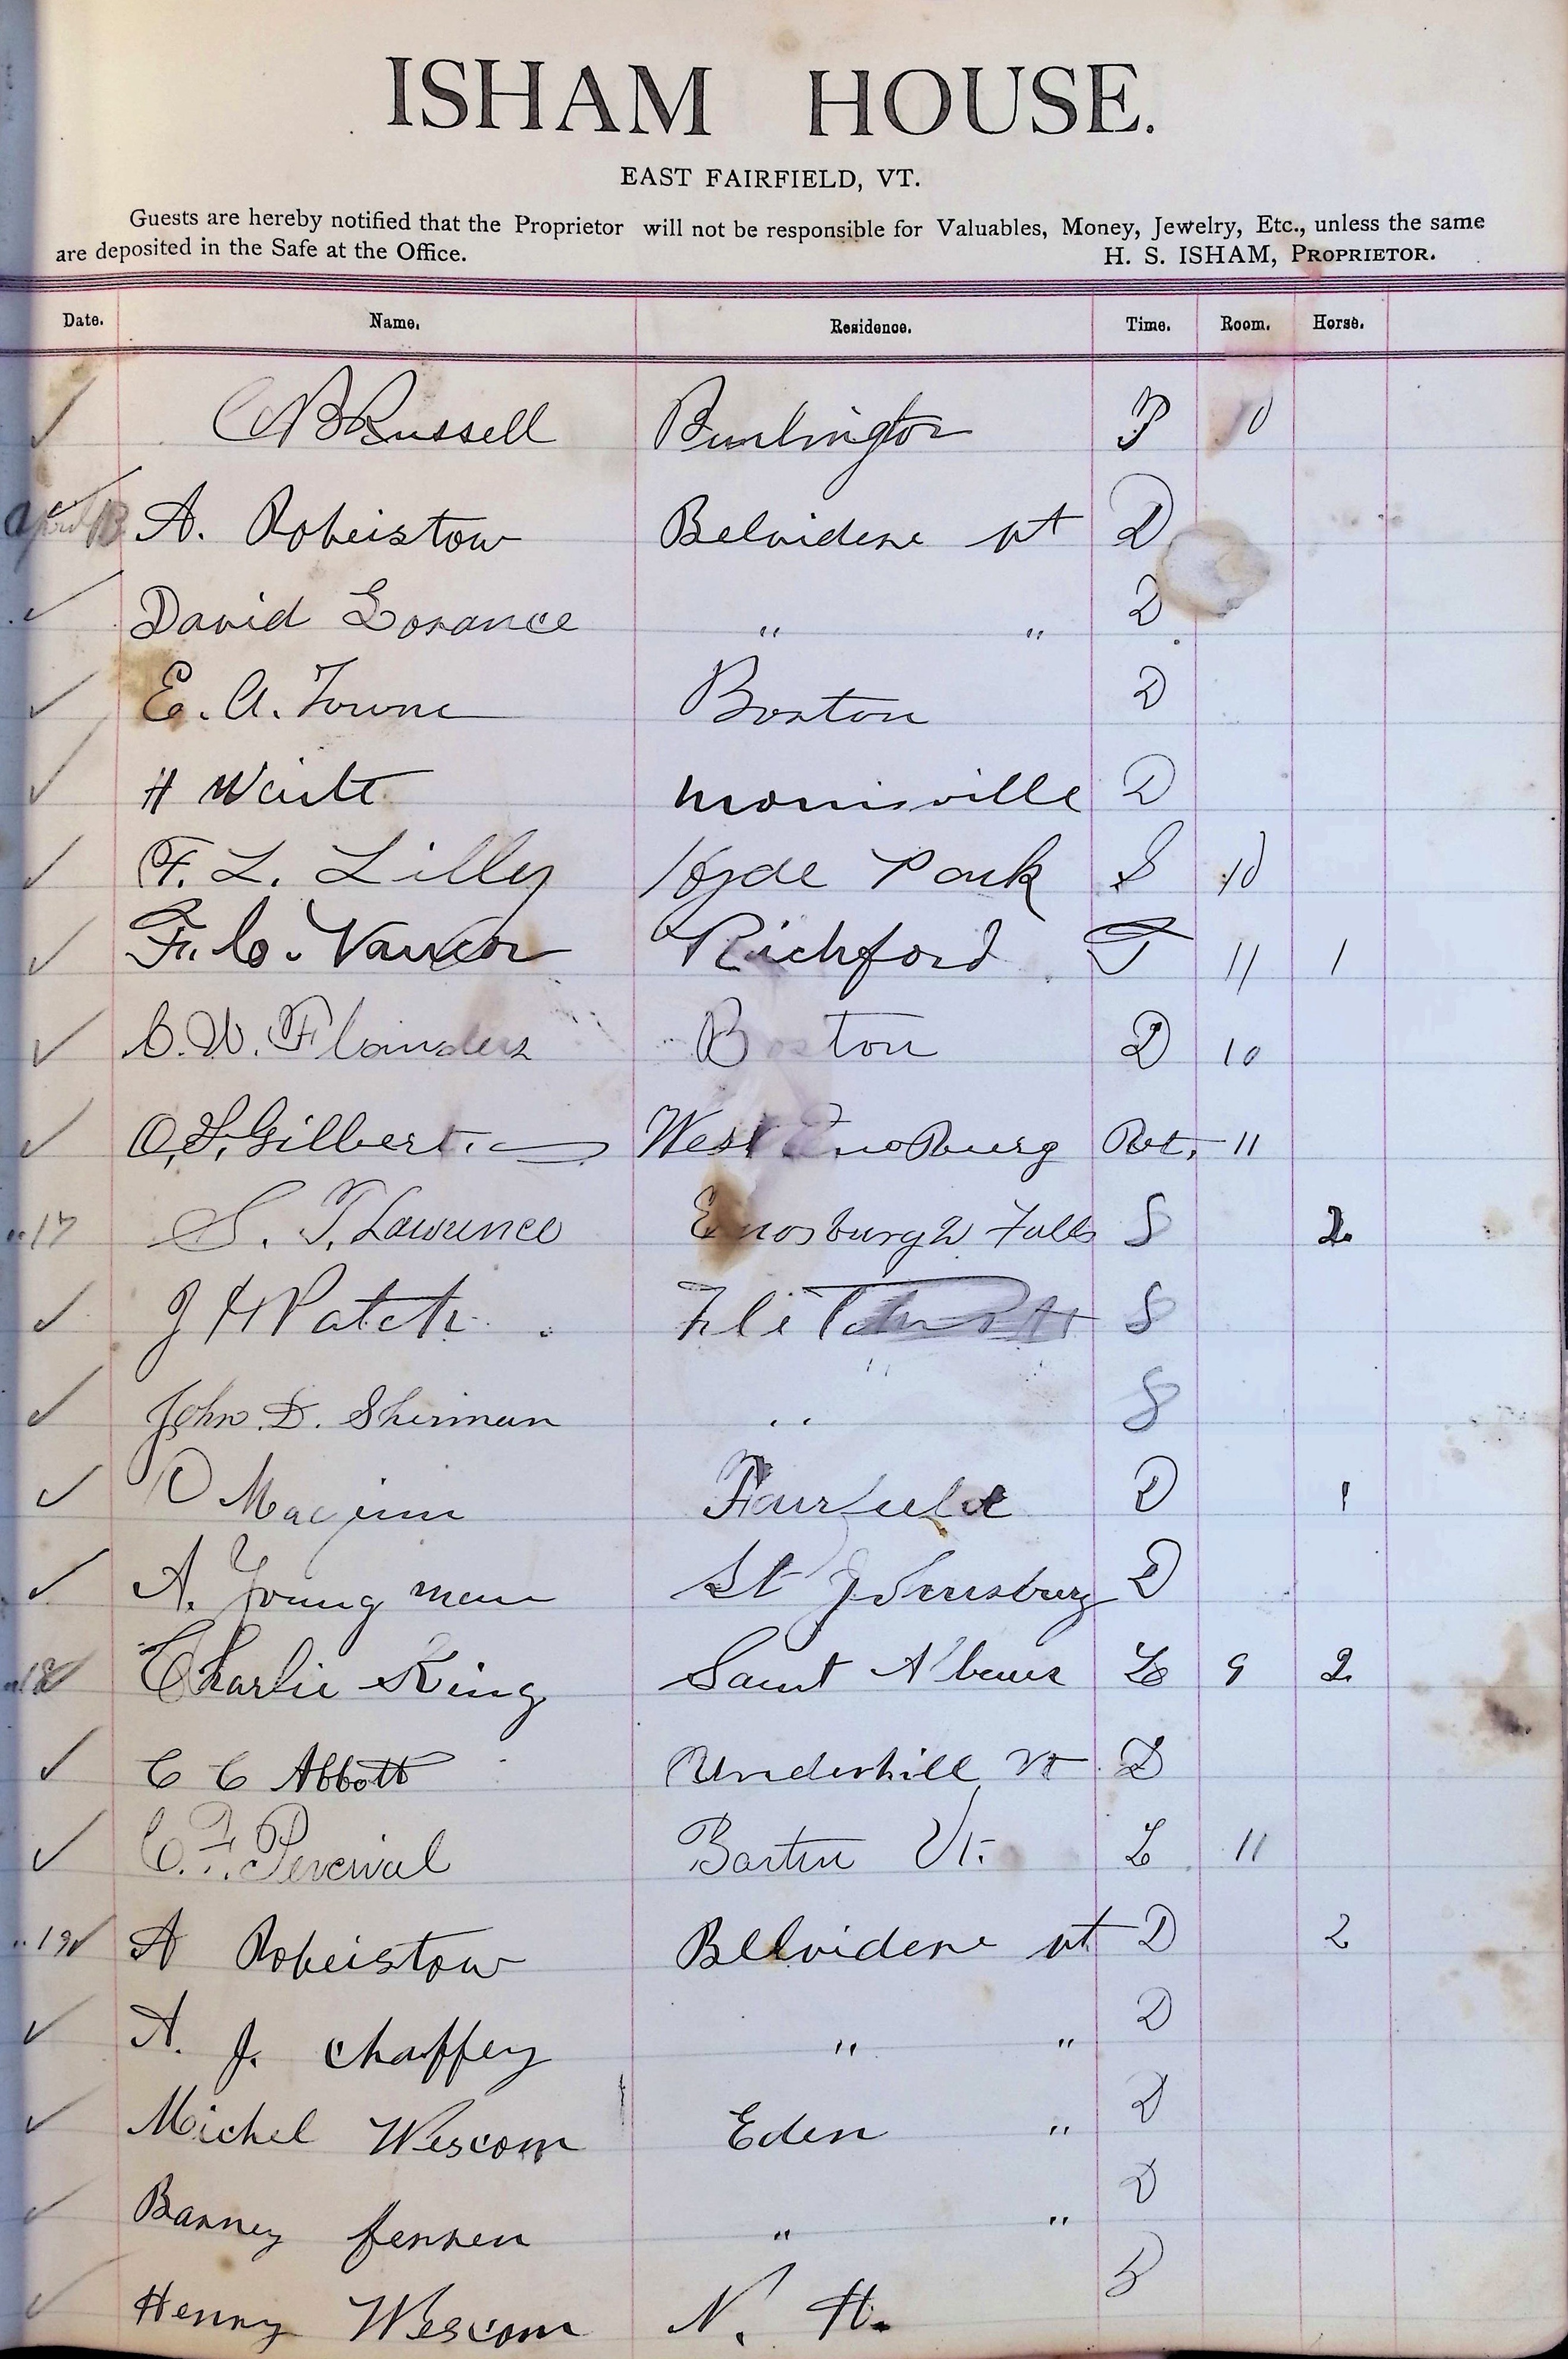 ISHAM HOUSE.
EAST FAIRFIELD, VT.
Guests are hereby notified that the Proprietor will not be responsible for Valuables, Money, Jewelry, Etc., unless the same
are deposited in the Safe at the Office. H. S. ISHAM, PROPRIETOR.
Date. Name. Residence. Time. Room. Horse.
Russell Burlington 10
April A. Roberstow Belvidere vt D
David Lorance " " D
E. A. Towne Boston D
H Waite Morrisville D
F. L. Lilley Hyde Park S 10
F. C. Richford 11 1
C. W. Flanders Boston D 10
O. S. Gilbert. West Enosburg 11
" 17 S. T. Lawrence Enosburgh Falls S 2
J H Patch S
John D. Sherman " S
Maginn Fairfield D 1
A. Young man St Johnsbury D
" 18 Charlie King Saint Albans L 9 2
C C Abbott Underhill Vt D
C. F. Percival Barton Vt. L 11
" 19 A Roberstow Belvidere vt D 2
A. J. Chaffey " " D
Michel Wescom Eden " D
Barney " " D
Henry Wescom N. H.